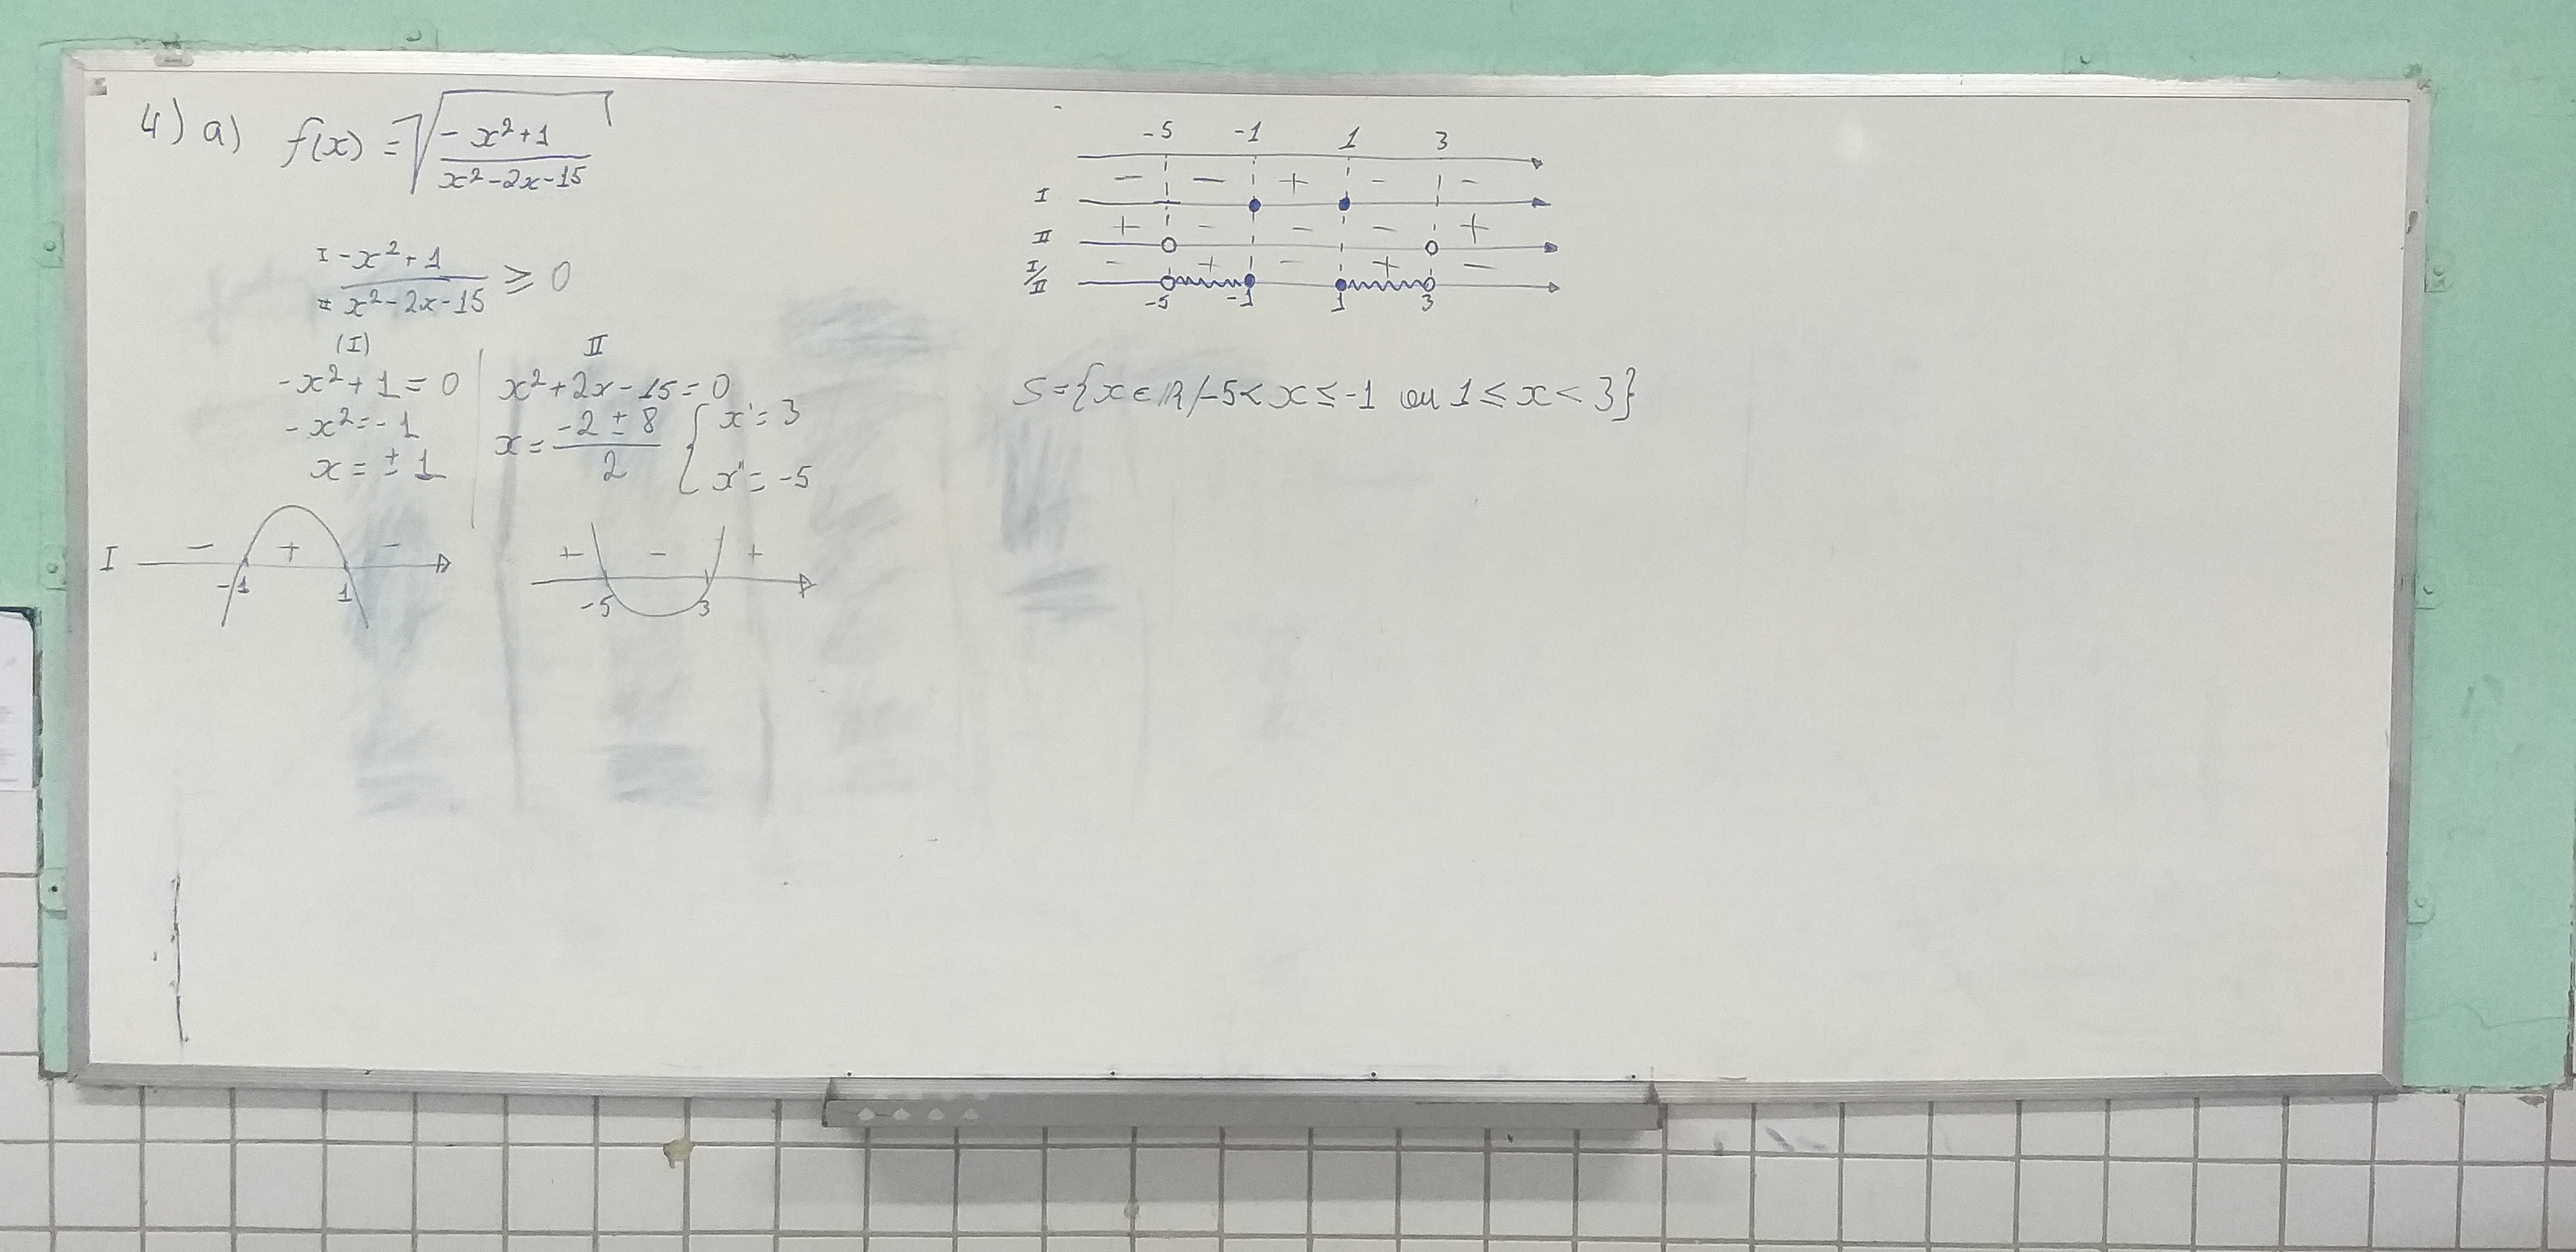 4) a) f(x) = √((-x²+1)/(x²-2x-15))
I -x²+1
II x²-2x-15 ≥ 0
(I)
-x²+1=0
-x²=-1
x=±1
II
x²+2x-15=0
x = (-2±8)/2 { x'=3
x''=-5
I - + -
-1 1
+ - +
-5 3
-5 -1 1 3
I - - + - -
II + - - - +
I/II - + - + -
-5 -1 1 3
S={x∈ℝ/-5<x≤-1 ou 1≤x<3}